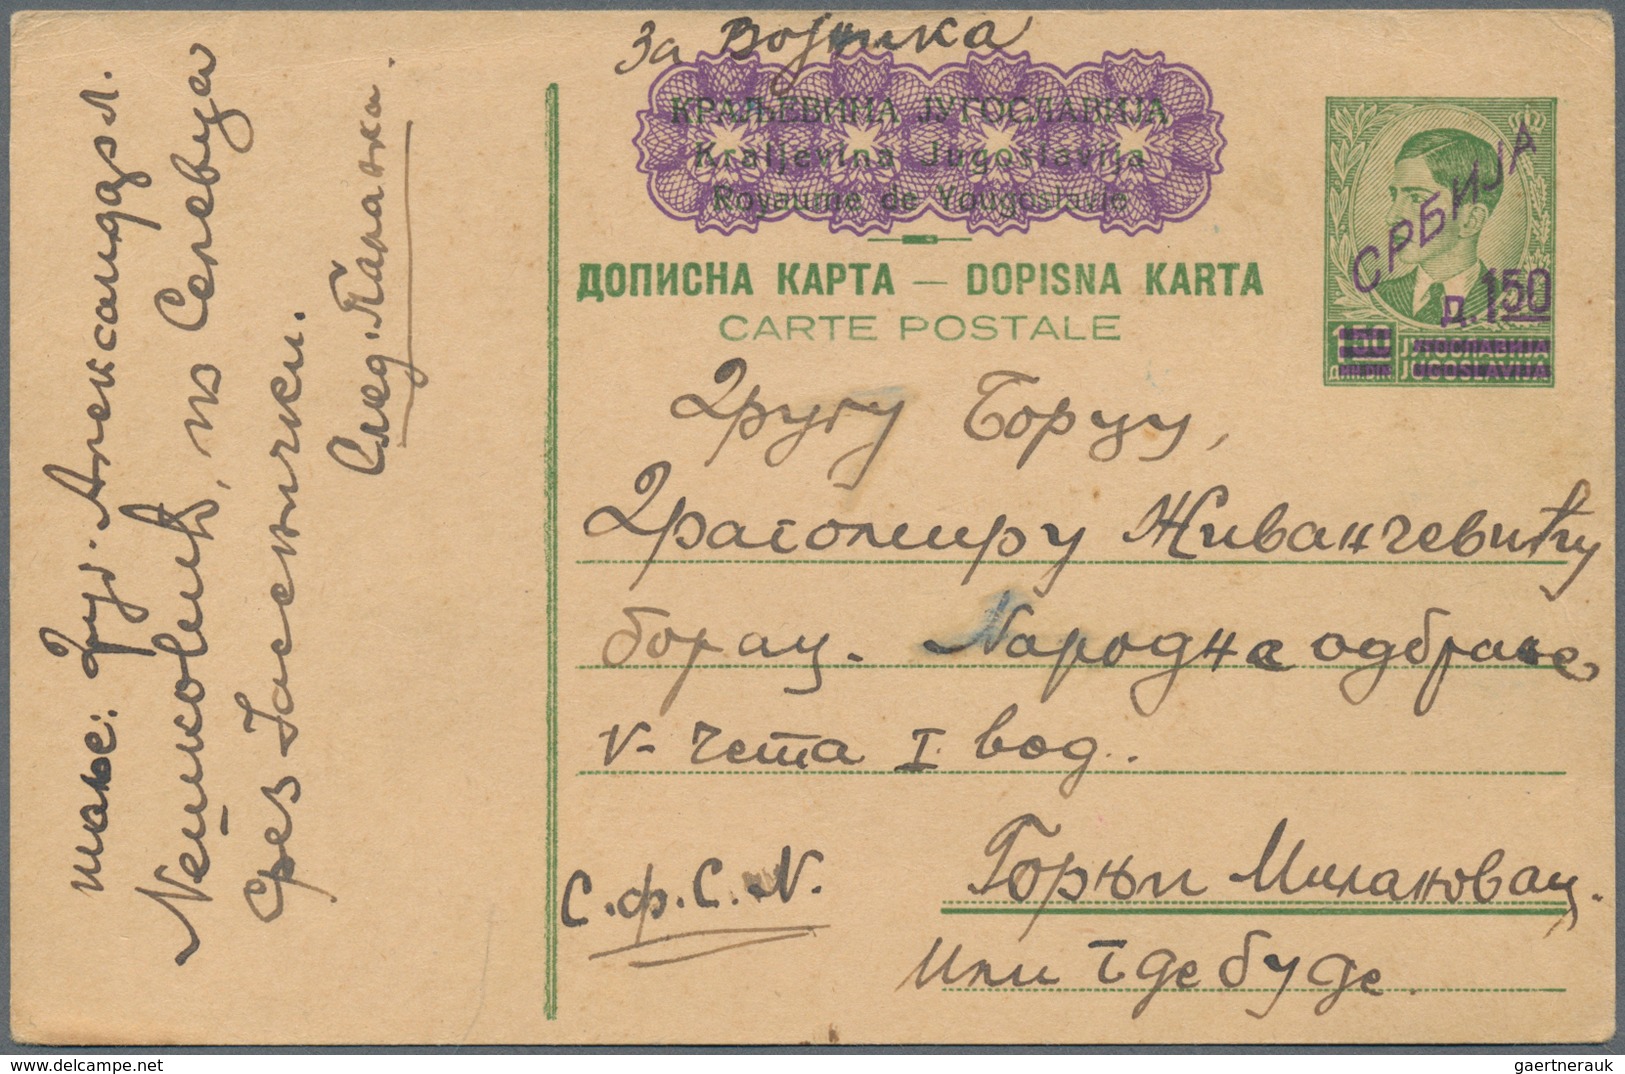 За војника
КРАЉЕВИНА ЈУГОСЛАВИЈА
Kraljevina Jugoslavija
Royaume de Yougoslavie
ДОПИСНА КАРТА — DOPISNA KARTA
CARTE POSTALE
СРБИЈА
д. 150
1.50 ЈУГОСЛАВИЈА
ДИН. DIN. JUGOSLAVIJA
Другу Борцу,
Драгомиру Живанчевићу
борац. Народне одбране
V- чета I вод.
С.Ф.С.N.
Горњи Милановац.
или где буде.
шаље: Друг. Александар Л.
Нешковић, из Селевца
срез Јасенички.
След. Паланка.
gaertnerauk / delcampe.net